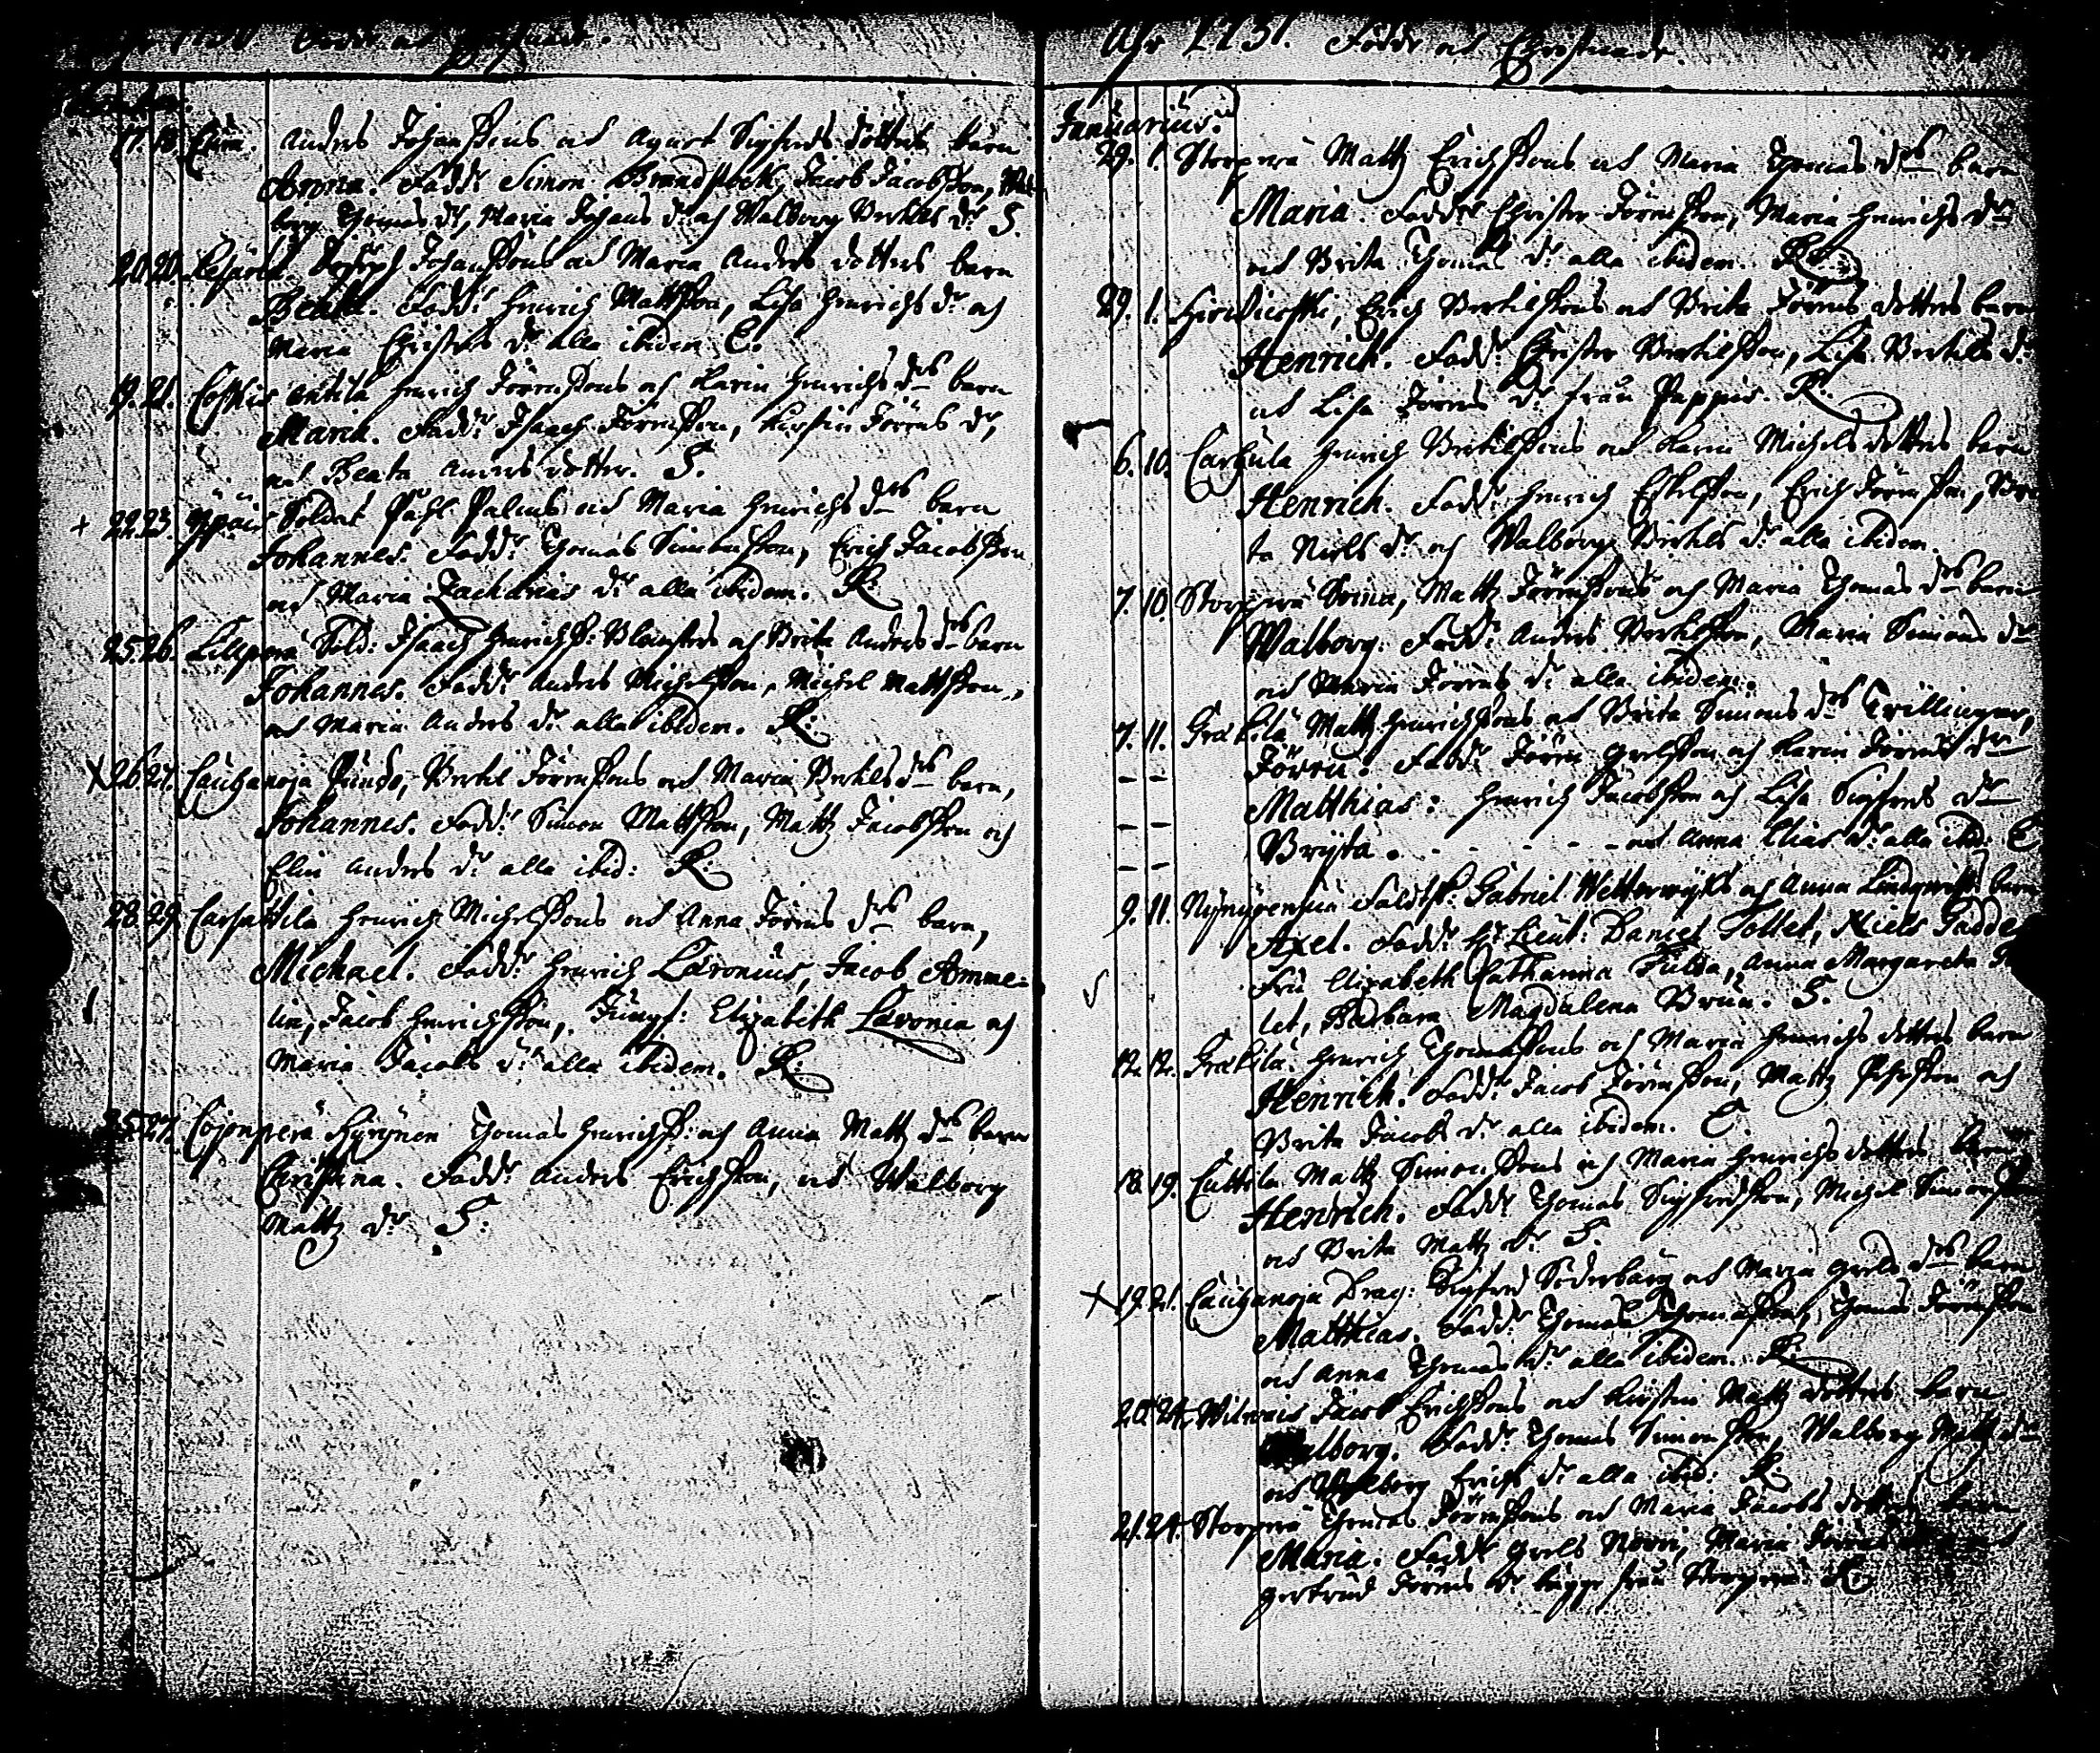 17. 18. Eura. Anders Johanssons och Agneta Sigfreds dotters barn
Anna. Fadd: Simon Brandstock, Jacob Jacobsson, Wal-
borg Thomas dr, Maria Johans dr och Walborg Bertils dr S.
20. 20. Johanssons och Maria Anders dotters barn
Beata. Fadd: Henrich Mattsson, Lisa Henrichs dr och
Maria Christers dr alla ibidem. C.
19. 21. Henrich Jörensons och Karin Henrichs drs barn
Maria. Fadd: Isaach Jörensson, Kirstin Jörens dr,
och Beata Anders dotter. S.
+ 22. 23. Soldat Påhl Palins och Maria Henrichs drs barn
Johannes. Fadd: Thomas Simonsson, Erich Jacobsson
och Maria Zacharias dr alla ibidem. R.
25. 26. Lillperä Sold: Isaach Henrichss: och Brita Anders drs barn
Johannes. Fadd: Anders Michelsson, Michel Mattsson,
och Maria Anders dr alla ibidem. R.
X 26. 27. Cauhanoja Bertil Jörenssons och Maria Bertils drs barn,
Johannes. Fadd: Simon Mattsson, Mattz Jacobsson och
Elin Anders dr alla ibid: R.
28. 29. Carsattila Henrich Michelssons och Anna Jörens drs barn,
Michael. Fadd: Henrich Laronius, Jacob Amme-
lin, Jacob Henrichsson, Jungf: Elizabeth Laronia och
Maria Jacobs dr alla ibidem. R.
25. 27. Cojonperä Hyrynen Thomas Henrichss: och Anna Mattz drs barn
Christina. Fadd: Anders Erichsson, och Walborg
Mattz dr S.
Åhr 1731. Födde och Christnade.
Januarius.
29. 1. Storperä Mattz Erichssons och Maria Thomas drs barn
Maria. Fadd: Christer Jörensson, Maria Henrichs dr
och Brita Thomas dr alla ibidem. R.
29. 1. Erich Bertilssons och Brita Jörens dotters barn
Henrich. Fadd: Christer Bertilsson, Lisa Bertils dr
och Lisa Jörens dr från Pappis. R.
6. 10. Carhula Henrich Bertilssons och Karin Michels dotters barn
Henrich. Fadd: Henrich Eskilsson, Erich Jörensson, Bri-
ta Niels dr och Walborg Bertils dr alla ibidem.
7. 10. Storperä Mattz Jörenssons och Maria Thomas drs barn
Walborg. Fadd: Anders Bertilsson, Maria Simons dr
och Maria Jörens dr alla ibidem.
7. 11. Mattz Henrichssons och Brita Simons drs Trillingar,
– – Jören. Fadd: Jören Grelsson och Karin Jörens dr
– – Matthias: Henrich Jacobsson och Lisa Sigfreds dr
– – Bryta. - - - - - och Anna Elias dr alla ibid: C
9. 11. Faldtsk: Gabriel Wetterwyks och Anna Lindqwists barn
Axel. Fadd: Hr Lieut: Daniel Tollet, Niels Gadde
Fru Elizabeth Catharina Fulda, Anna Margareta
let, Barbara Magdalena Brun. S.
12. 12. Henrich Thomassons och Maria Henrichs dotters barn
Henrich. Fadd: Jacob Jörensson, Mattz och
Brita Jacobs dr alla ibidem. C.
18. 19. Cuttila Mattz Simonssons och Maria Henrichs dotters barn
Henrich. Fadd: Thomas Sigfredsson, Michel Simonsson
och Brita Mattz dr S.
X 19. 21. Cauhanoja Drag: Sigfred Söderbärg och Maria Grels drs barn
Matthias. Fadd: Thomas Thomasson, Thomas Jörensson
och Anna Thomas dr alla ibidem. R.
20. 24. Jacob Erichssons och Kirstin Mattz dotters barn
Walborg. Fadd: Thomas Simonsson, Walborg Mattz dr
och Walborg Erichs dr alla ibid: R.
21. 24. Storperä Thomas Jörenssons och Maria Jacobs dotters barn
Maria. Fadd: Grels Maria Jörens
Gertrud Jörens dr bägge från Storperä. R